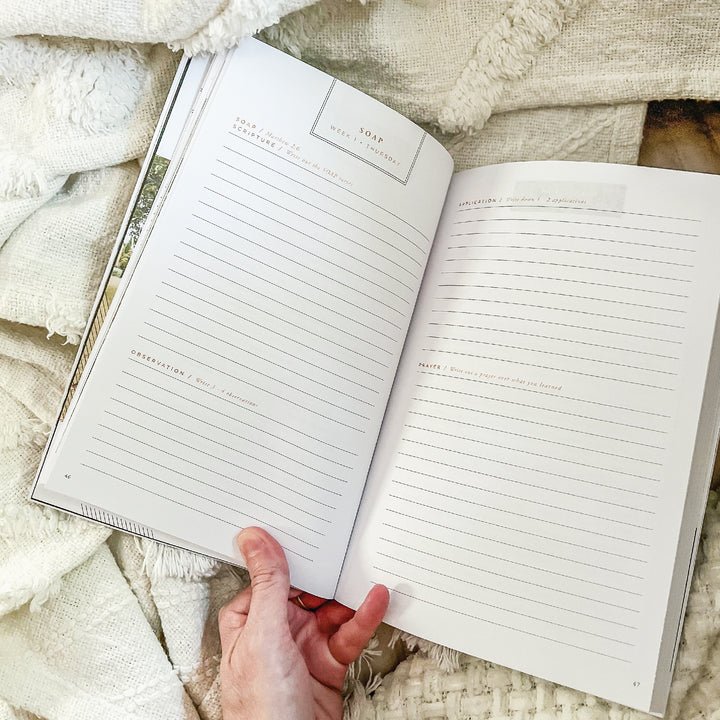 SOAP
WEEK 1 • THURSDAY
SOAP / Matthew 2:6
SCRIPTURE / Write out the SOAP verses
OBSERVATION / Write 3 - 4 observations
46
APPLICATION / Write down 1 - 2 applications
PRAYER / Write out a prayer over what you learned
47